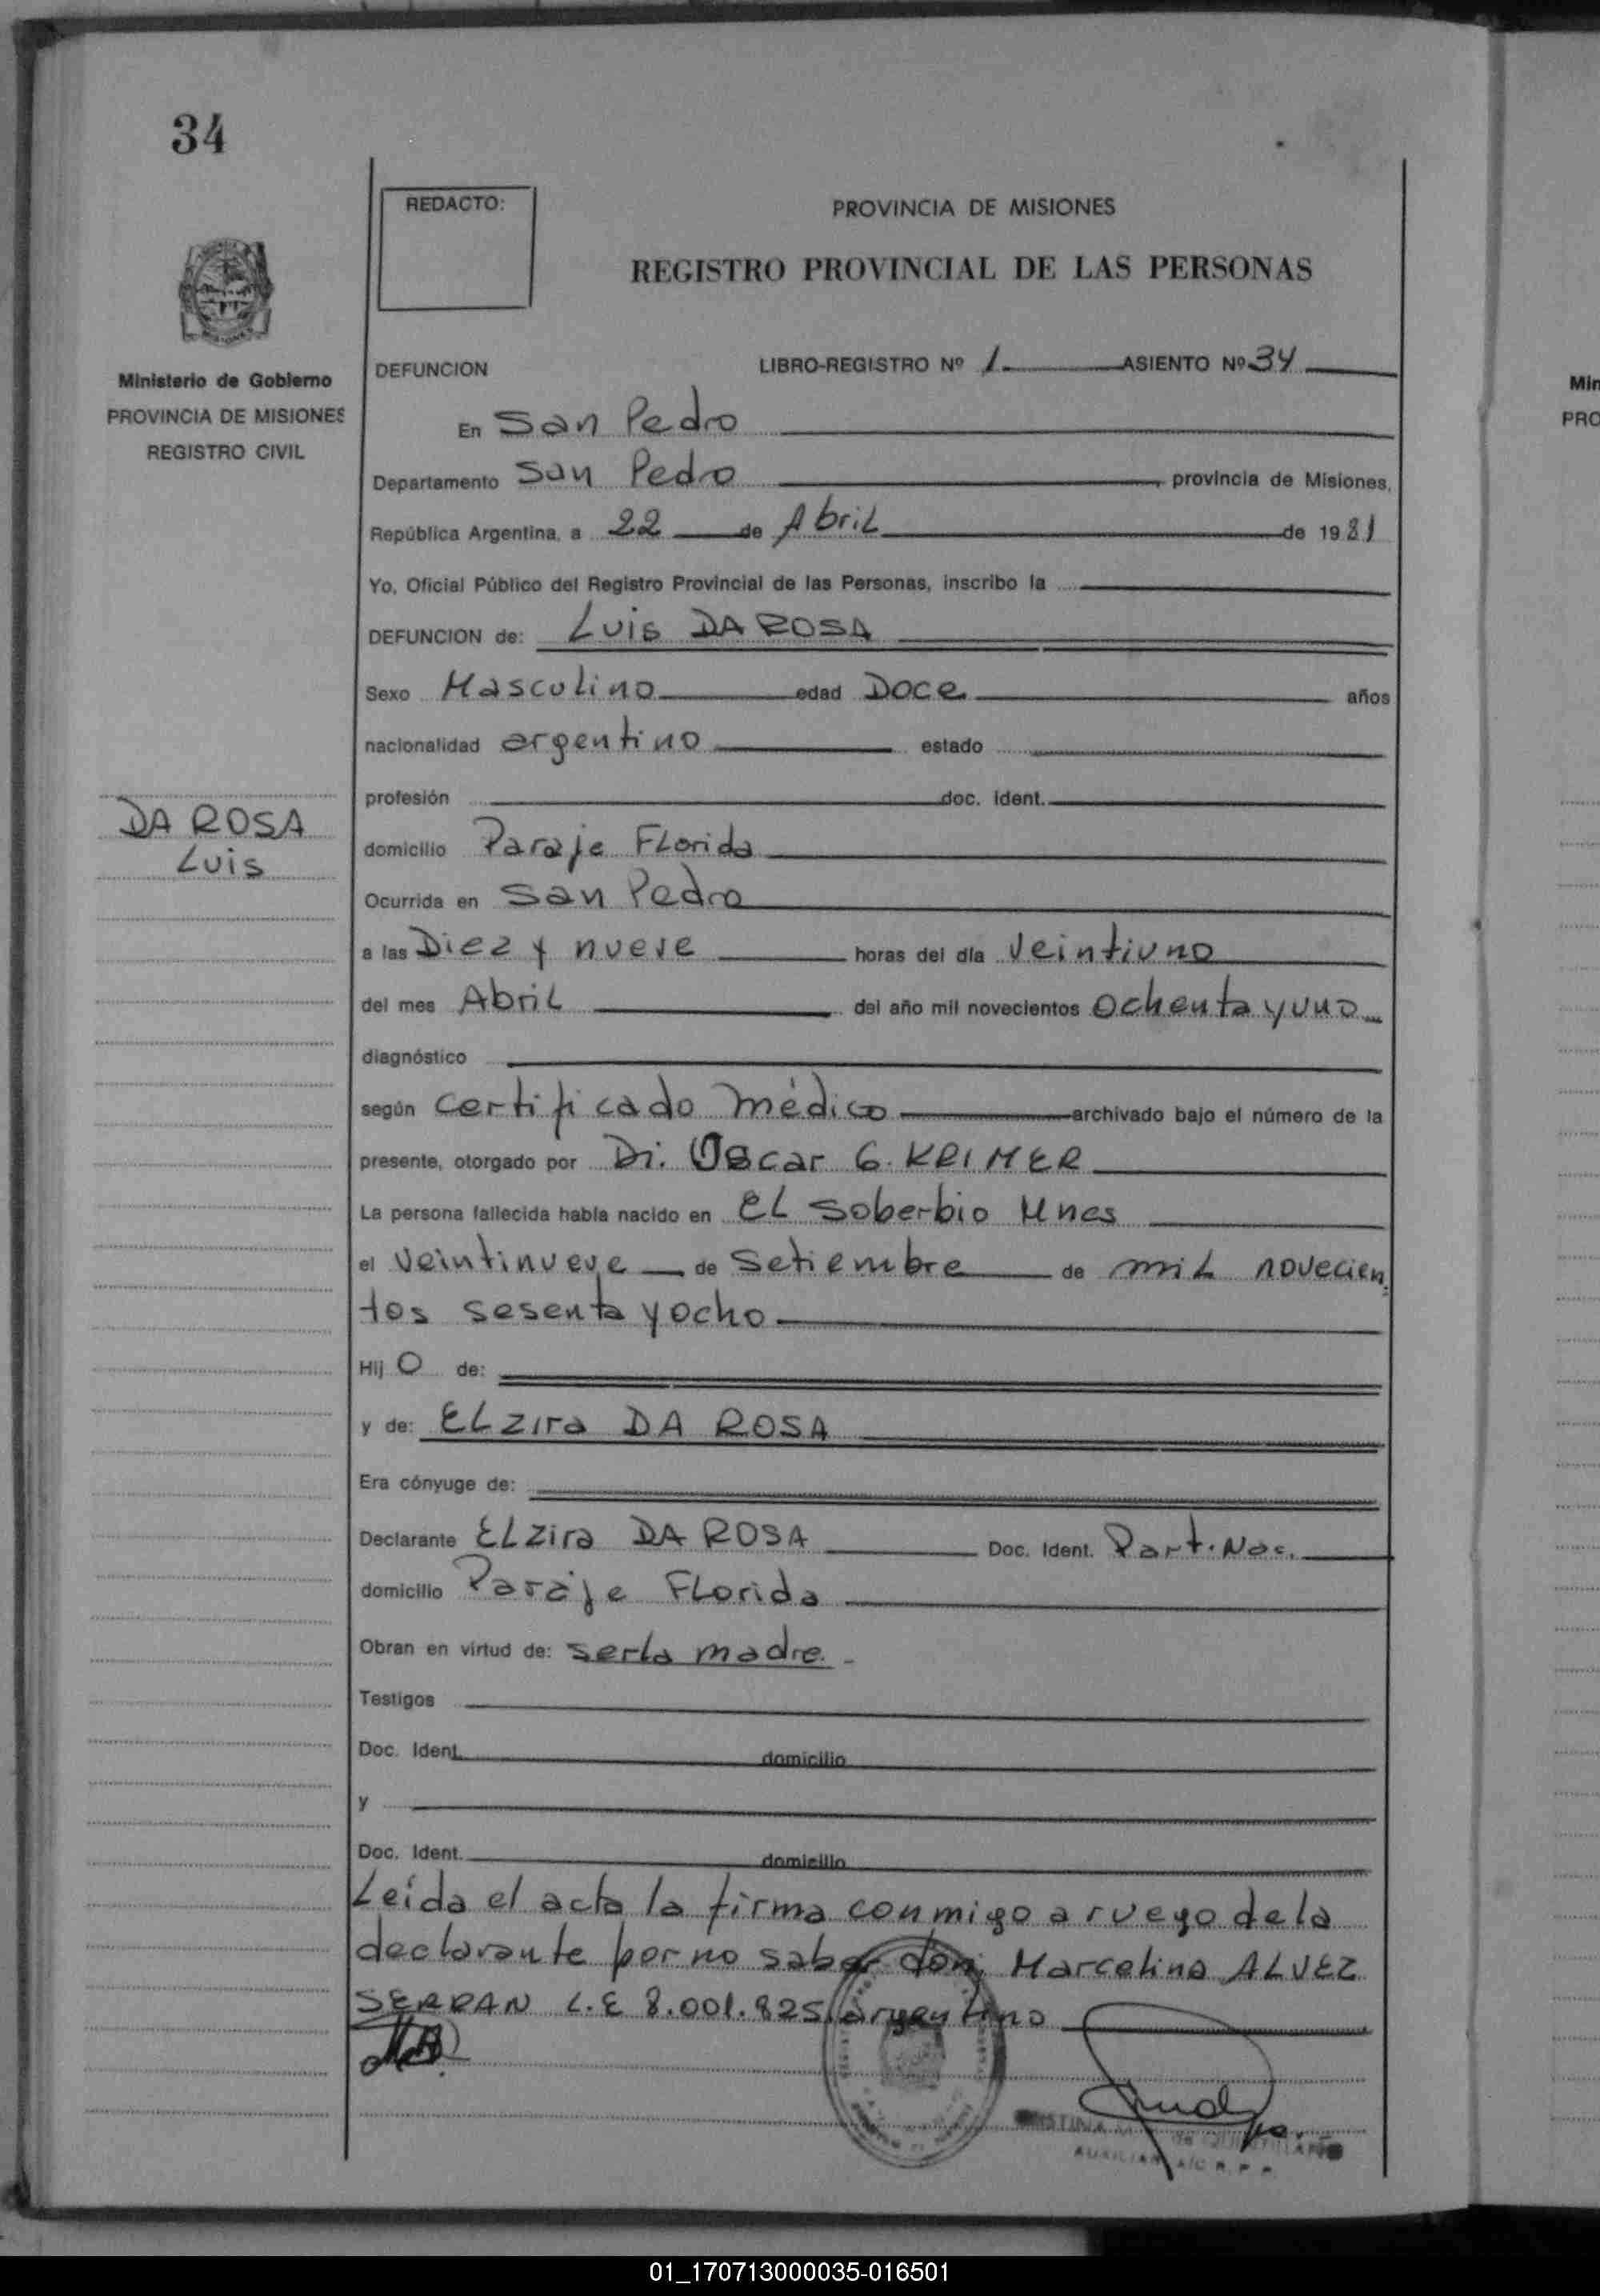 34
REDACTO:
PROVINCIA DE MISIONES
REGISTRO PROVINCIAL DE LAS PERSONAS
Ministerio de Gobierno
PROVINCIA DE MISIONES
REGISTRO CIVIL
DEFUNCION LIBRO-REGISTRO Nº 1. ASIENTO Nº 34
En San Pedro
Departamento San Pedro, provincia de Misiones,
República Argentina, a 22 de Abril de 1981
Yo, Oficial Público del Registro Provincial de las Personas, inscribo la
DEFUNCION de: Luis DA ROSA
Sexo Masculino edad Doce años
nacionalidad argentino estado
profesión doc. ident.
DA ROSA
Luis
domicilio Paraje Florida
Ocurrida en San Pedro
a las Diez y nueve horas del día veintiuno
del mes Abril del año mil novecientos ochenta y uno
diagnóstico
según certificado médico archivado bajo el número de la
presente, otorgado por Dr. Oscar G. KRIMER
La persona fallecida había nacido en El Soberbio Mnes
el veintinueve de Setiembre de mil novecien
tos sesenta y ocho
Hij o de:
y de: Elzira DA ROSA
Era cónyuge de:
Declarante Elzira DA ROSA Doc. Ident. Part. Nac.
domicilio Paraje Florida
Obran en virtud de: ser la madre.-
Testigos
Doc. Ident. domicilio
y
Doc. Ident. domicilio
Leída el acta la firma conmigo a ruego de la
declarante por no saber don Marcelino ALVEZ
SERRAN L.E 8.001.825 argentino
AUXILIAR A/C R. P. P.
01_170713000035-016501